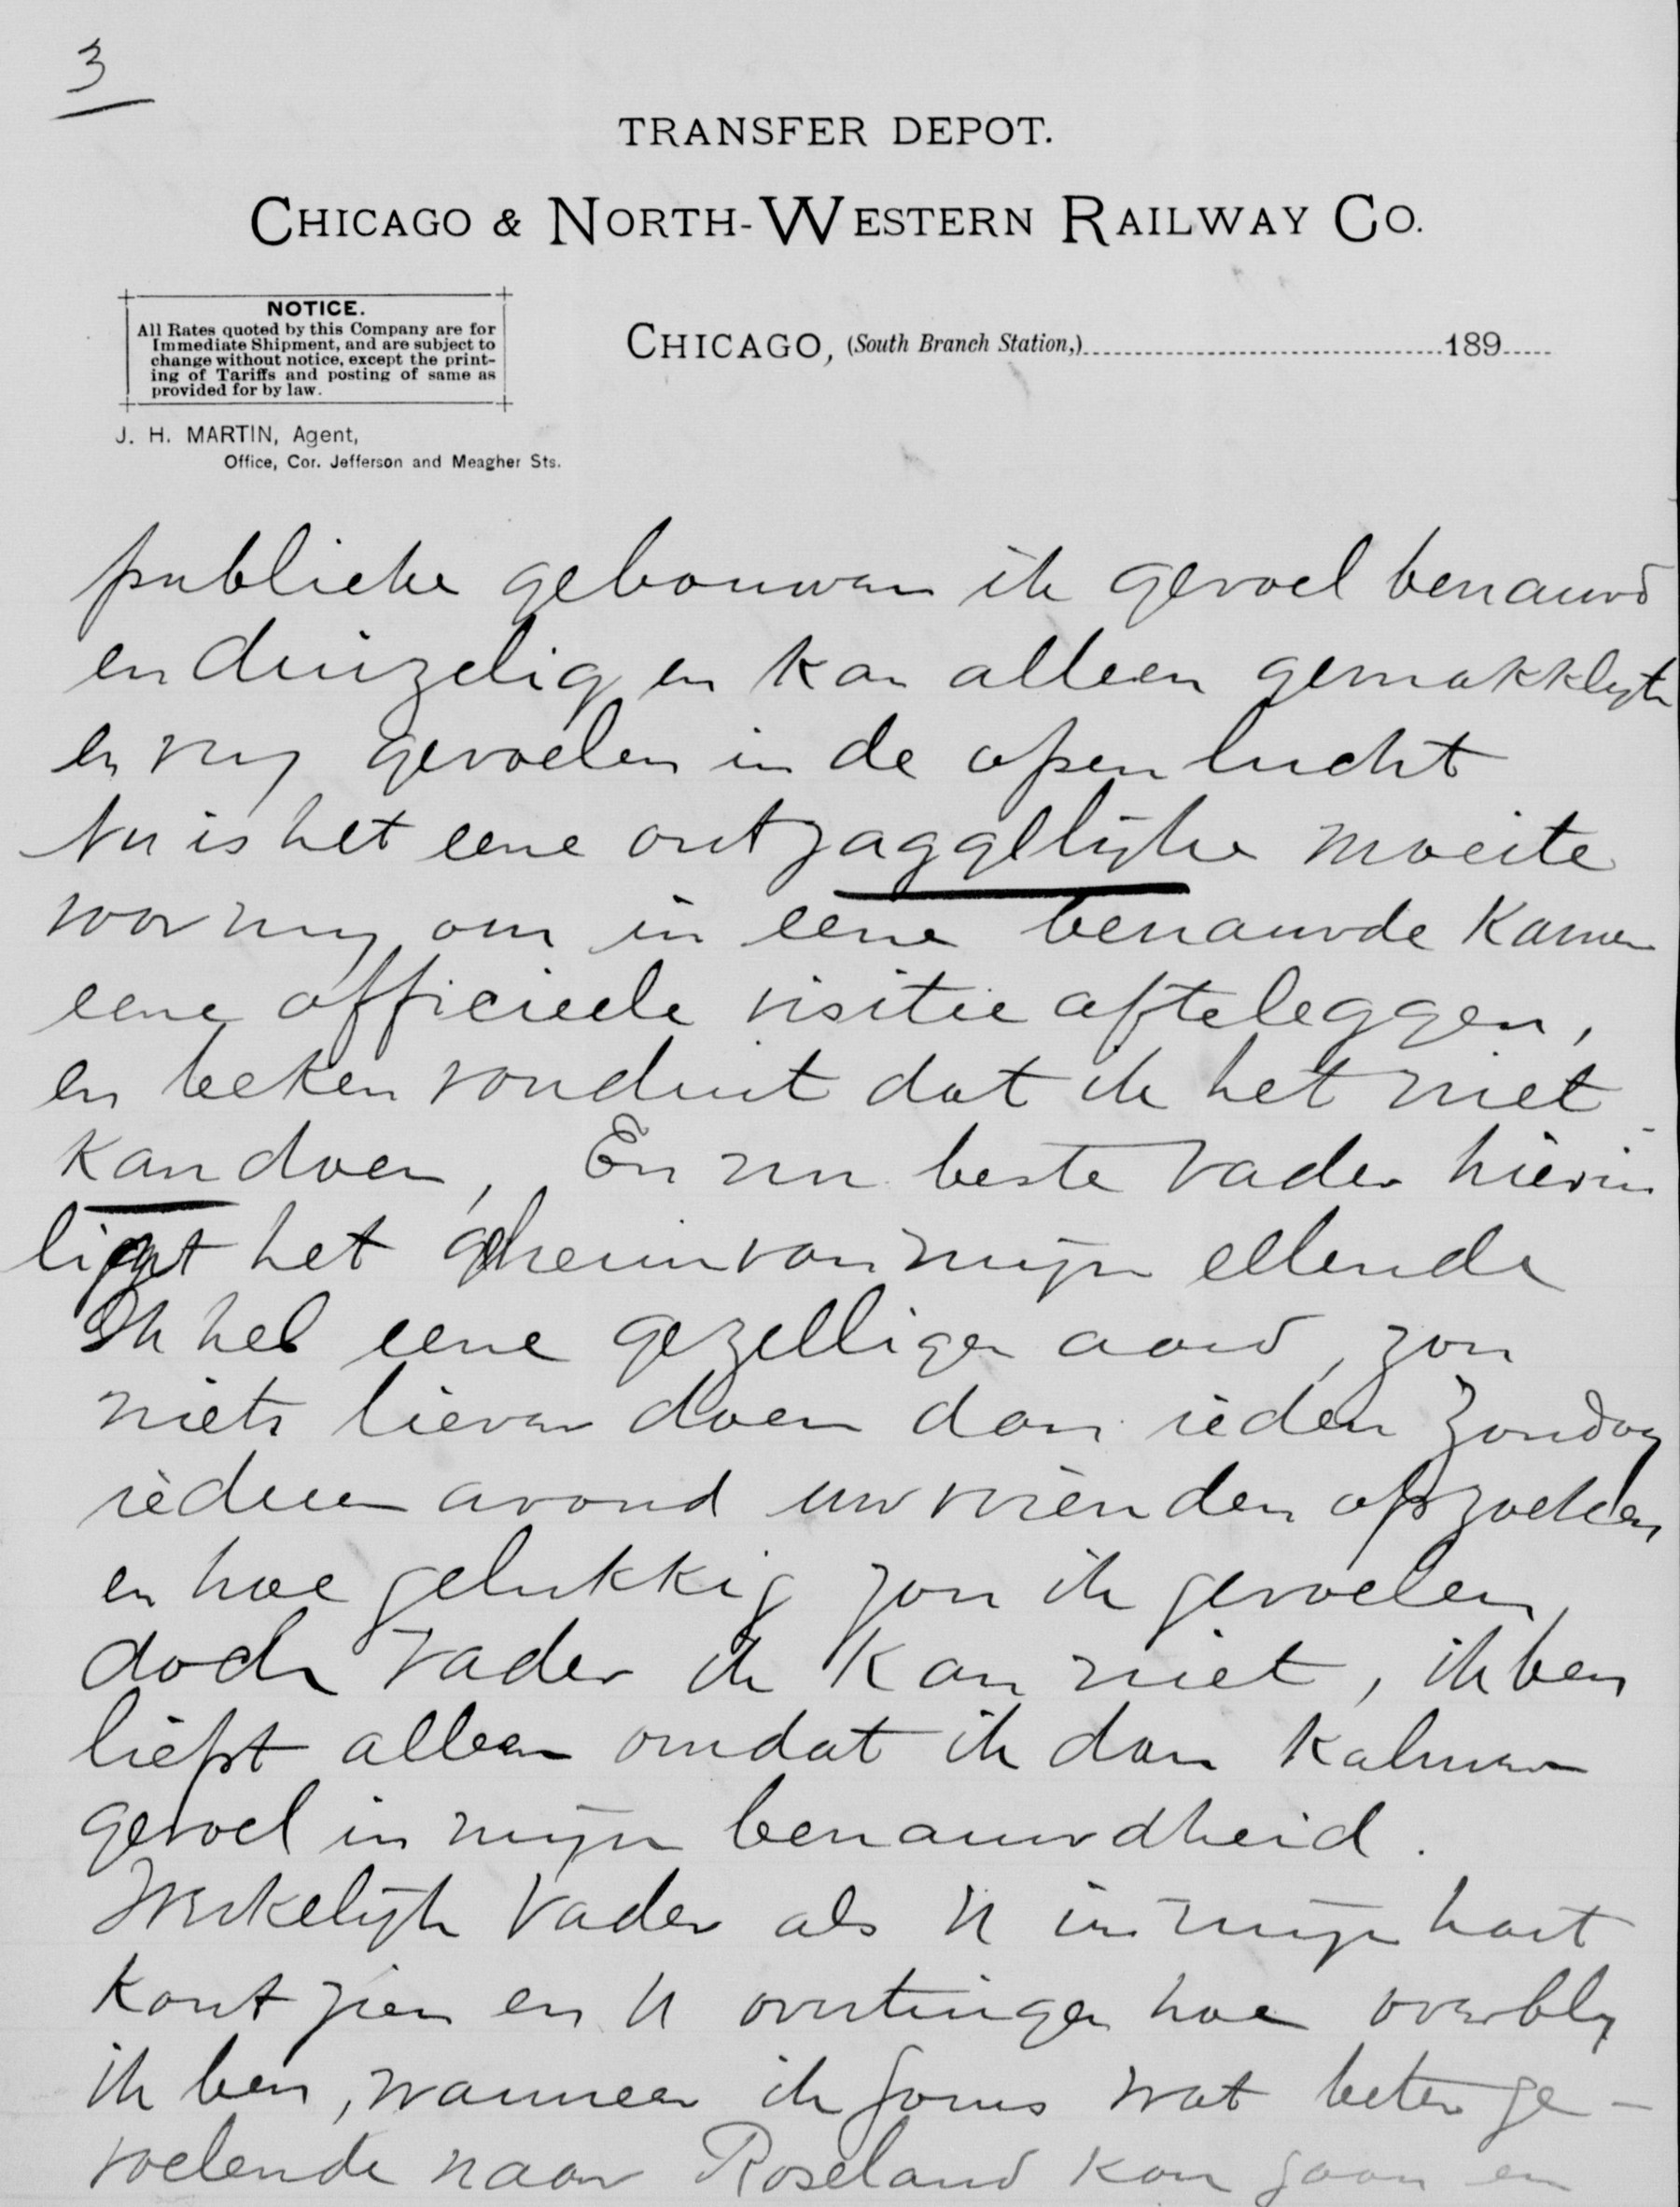 3
TRANSFER DEPOT.
CHICAGO & NORTH-WESTERN RAILWAY CO.
NOTICE.
All Rates quoted by this Company are for
Immediate Shipment, and are subject to
change without notice, except the print-
ing of Tariffs and posting of same as
provided for by law.
CHICAGO, (South Branch Station,) 189
J. H. MARTIN, Agent,
Office, Cor. Jefferson and Meagher Sts.
publieke gebouwen ik gevoel benauwd
en duizelig en kan alleen gemakklijk
en vrij gevoelen in de open lucht
Nu is het eene ontzaggelijke moeite
voor mij om in eene benauwde Kamer
eene officieele visitie afteleggen,
en beken ronduit dat ik het niet
kan doen, En nu beste Vader hierin
ligt het geheim van mijn ellende
Ik heb eene gezelligen aard, zou
niets liever doen dan ieder Zondag
iederen avond uw vrienden opzoeken
en hoe gelukkig zou ik gevoelen,
doch Vader ik kan niet, ik ben
liefst alleen omdat ik dan kalmer
gevoel in mijn benauwdheid.
Werkelijk Vader als U in mijn hart
kont zien en U overtuigen hoe overblij
ik ben, wanneer ik soms wat beter ge-
voelende naar Roseland kan gaan en